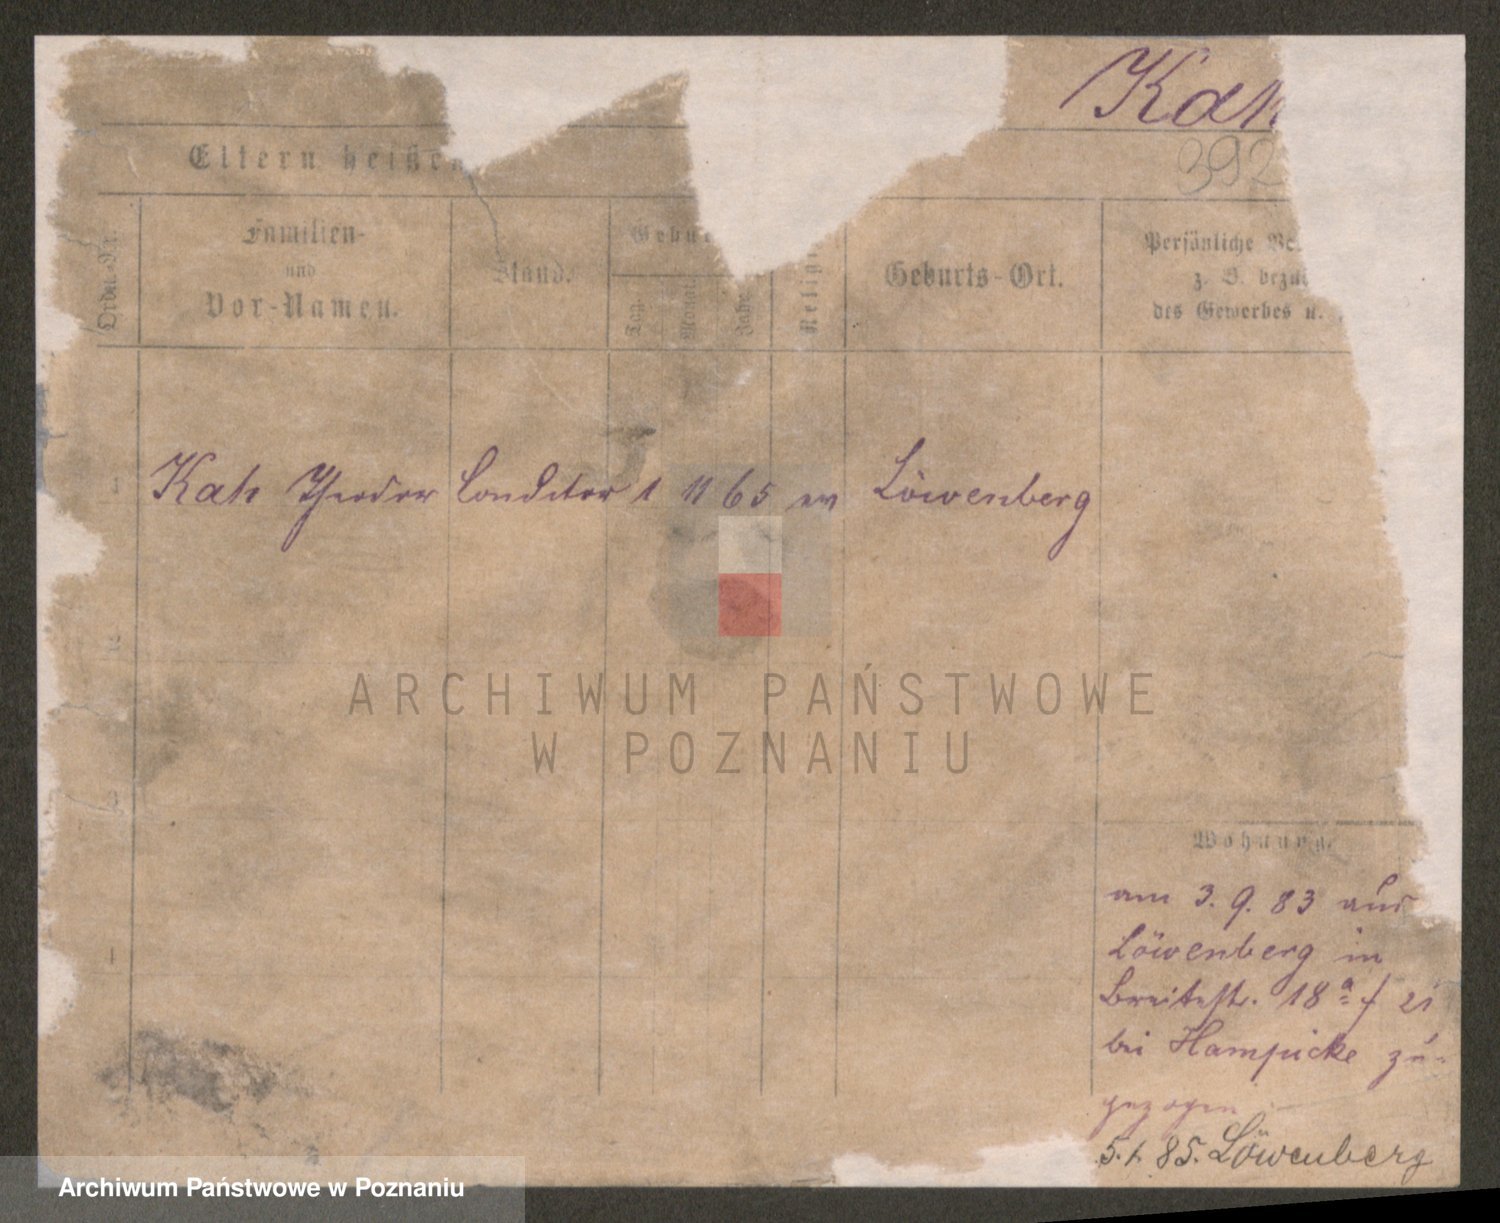 Kah
392
Eltern heißen
Ordn.-Nr.
Familien-
und
Vor-Namen.
Stand.
Gebu
Tag.
Monat.
Jahr.
Religi
Geburts-Ort.
Persönliche Ve
z. B. bezü
des Gewerbes u.
Kah Theodor Conditor 1 11 65 ev Löwenberg
Wohnung.
am 3. 9. 83 aus
Löwenberg in
Breitestr. 18 a
bei Hampicke zu-
gezogen
5. 1. 85. Löwenberg
ARCHIWUM PAŃSTWOWE
W POZNANIU
Archiwum Państwowe w Poznaniu